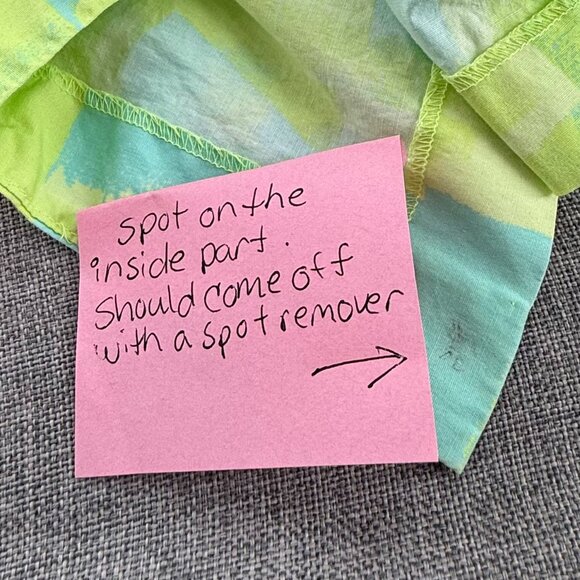 spot on the
inside part.
Should come off
with a spot remover